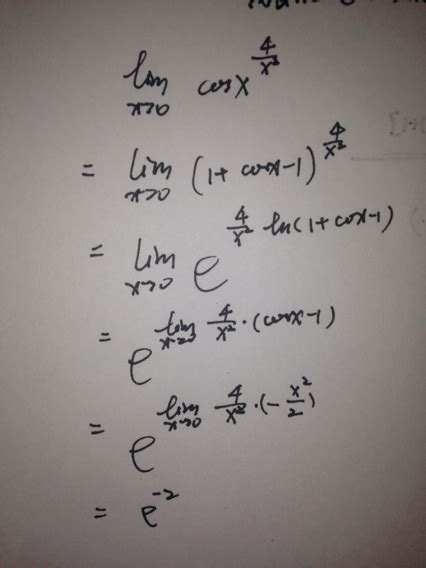 lim x→0 cosx^(4/x²)
= lim x→0 (1+cosx-1)^(4/x²)
= lim x→0 e^(4/x² ln(1+cosx-1))
= e^(lim x→0 4/x²·(cosx-1))
= e^(lim x→0 4/x²·(-x²/2))
= e^-2